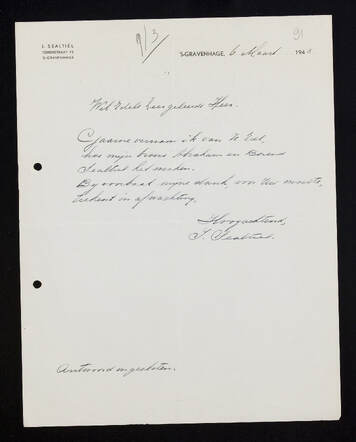 9/3
91
I. SEALTIEL
'S-GRAVENHAGE
'S-GRAVENHAGE, 6 Maart 194
Wel Edele Zeer geleerde Heer.
Gaarne vernam ik van U Ed.,
hoe mijn broers Abraham en
Sealtiel het maken.
Bij voorbaat mijne dank, voor Uw moeite,
in afwachting,
Hoogachtend,
I. Sealtiel.
Antwoord ingesloten.